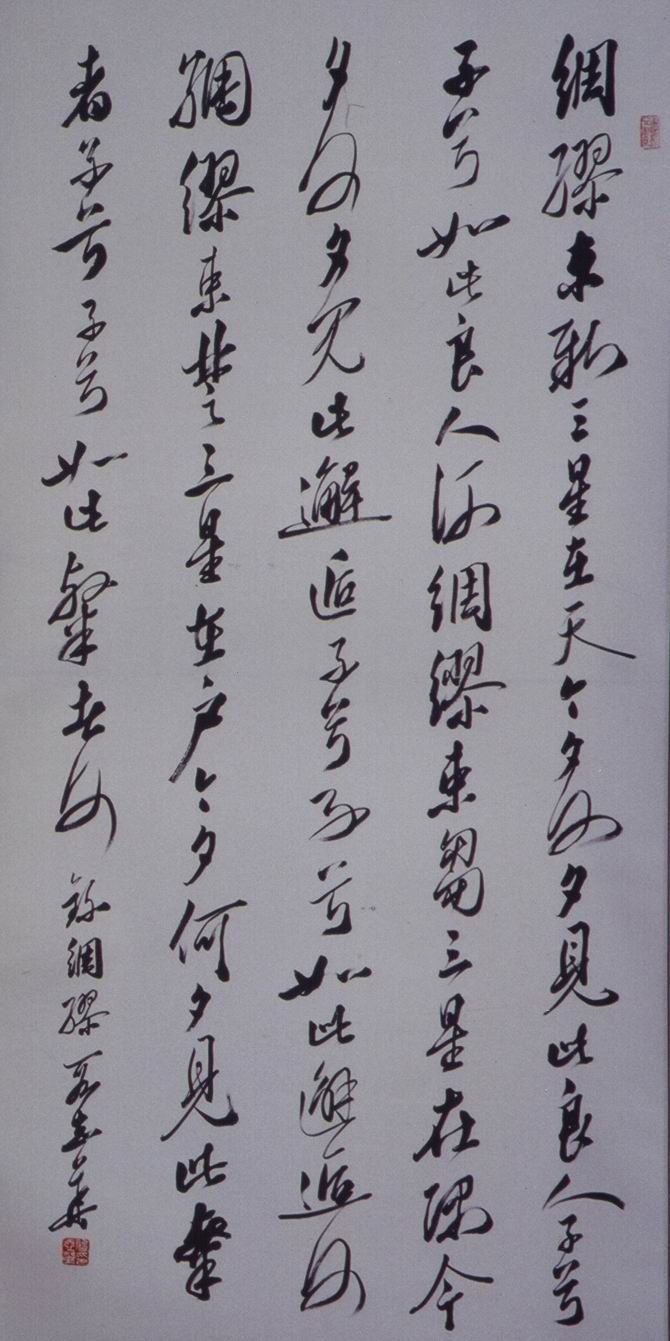 綢繆束薪三星在天今夕何夕見此良人子兮
子兮如此良人何綢繆束芻三星在隅今
夕何夕見此邂逅子兮子兮如此邂逅何
綢繆束楚三星在户今夕何夕見此粲
者子兮子兮如此粲者何 錄綢繆